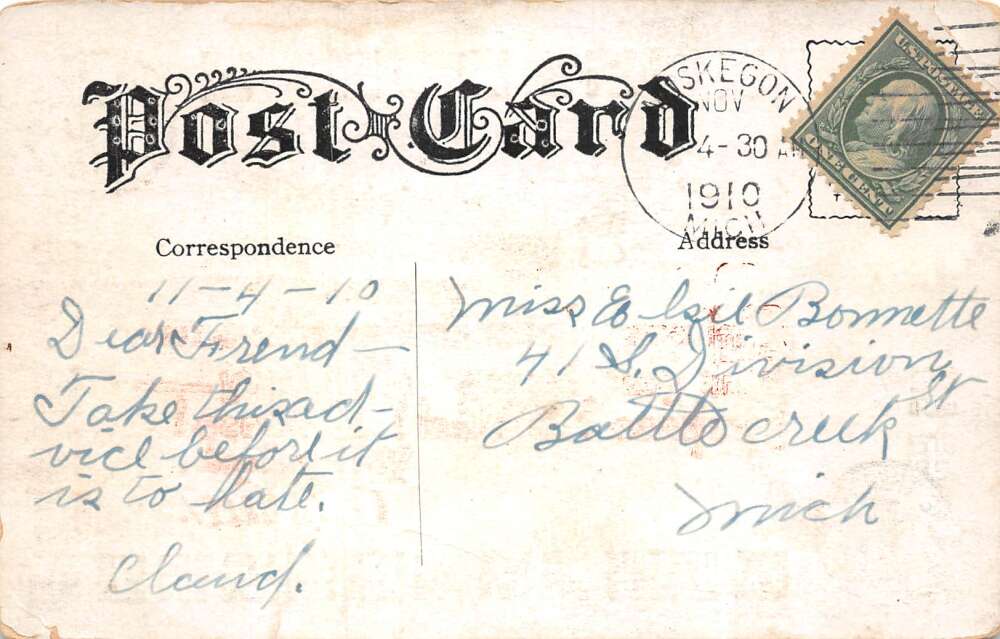 Post Card
SKEGON
NOV
4-30 AM
1910
MICH
U.S. POSTAGE
Correspondence
Address
11-4-10
Dear Frend-
Take this ad-
vice before it
is to late.
Claud.
Miss Elsie Bonnette
41 S. Division
St
Battle creek
Mich